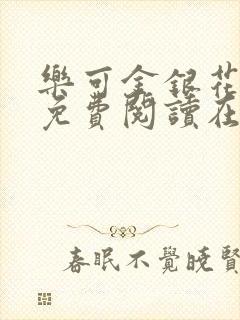 樂可金銀花
免費閱讀在
春眠不覺曉賢